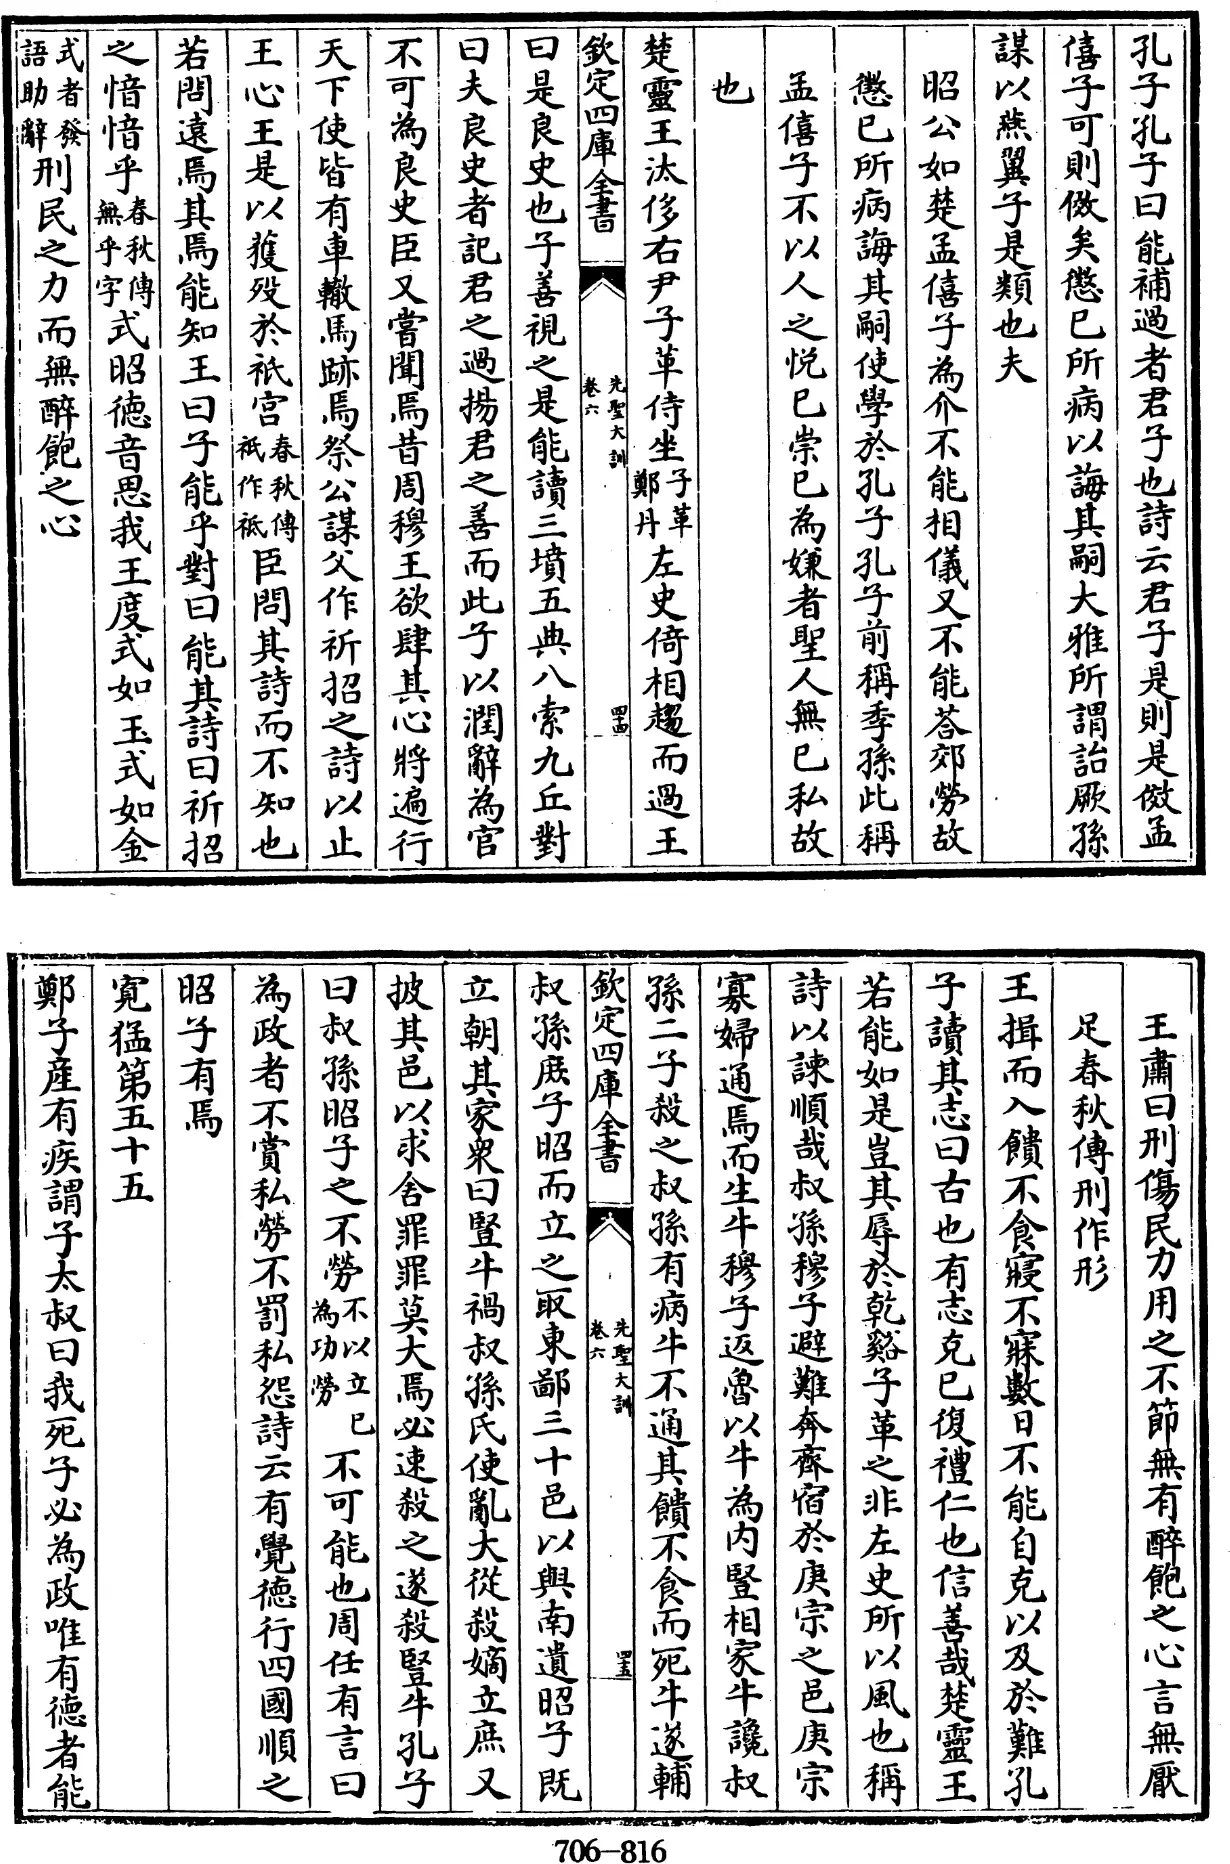 孔子孔子曰能補過者君子也詩云君子是則是傚孟
僖子可則傚矣懲已所病以誨其嗣大雅所謂詒厥孫
謀以燕翼子是類也夫
昭公如楚孟僖子為介不能相儀又不能荅郊勞故
懲已所病誨其嗣使學於孔子孔子前稱季孫此稱
孟僖子不以人之悅已崇已為嫌者聖人無已私故
也
楚靈王汰侈右尹子革侍坐子革鄭丹左史倚相趨而過王
欽定四庫全書
先聖大訓
卷六
四十四
曰是良史也子善視之是能讀三墳五典八索九丘對
曰夫良史者記君之過揚君之善而此子以潤辭為官
不可為良史臣又嘗聞焉昔周穆王欲肆其心將遍行
天下使皆有車轍馬跡焉祭公謀父作祈招之詩以止
王心王是以獲殁於祇宮春秋傳祇作祗臣問其詩而不知也
若問遠焉其焉能知王曰子能乎對曰能其詩曰祈招
之愔愔乎春秋傳無乎字式昭德音思我王度式如玉式如金
式者發語助辭刑民之力而無醉飽之心
王肅曰刑傷民力用之不節無有醉飽之心言無厭
足春秋傳刑作形
王揖而入饋不食寢不寐數日不能自克以及於難孔
子讀其志曰古也有志克已復禮仁也信善哉楚靈王
若能如是豈其辱於乾谿子革之非左史所以風也稱
詩以諫順哉叔孫穆子避難奔齊宿於庚宗之邑庚宗
寡婦通焉而生牛穆子返魯以牛為內豎相家牛讒叔
孫二子殺之叔孫有病牛不通其饋不食而死牛遂輔
欽定四庫全書
先聖大訓
卷六
四十五
叔孫庶子昭而立之取東鄙三十邑以與南遺昭子既
立朝其家衆曰豎牛禍叔孫氏使亂大從殺嫡立庶又
披其邑以求舍罪罪莫大焉必速殺之遂殺豎牛孔子
曰叔孫昭子之不勞不以立已為功勞不可能也周任有言曰
為政者不賞私勞不罰私怨詩云有覺德行四國順之
昭子有焉
寛猛第五十五
鄭子產有疾謂子太叔曰我死子必為政唯有德者能
706-816